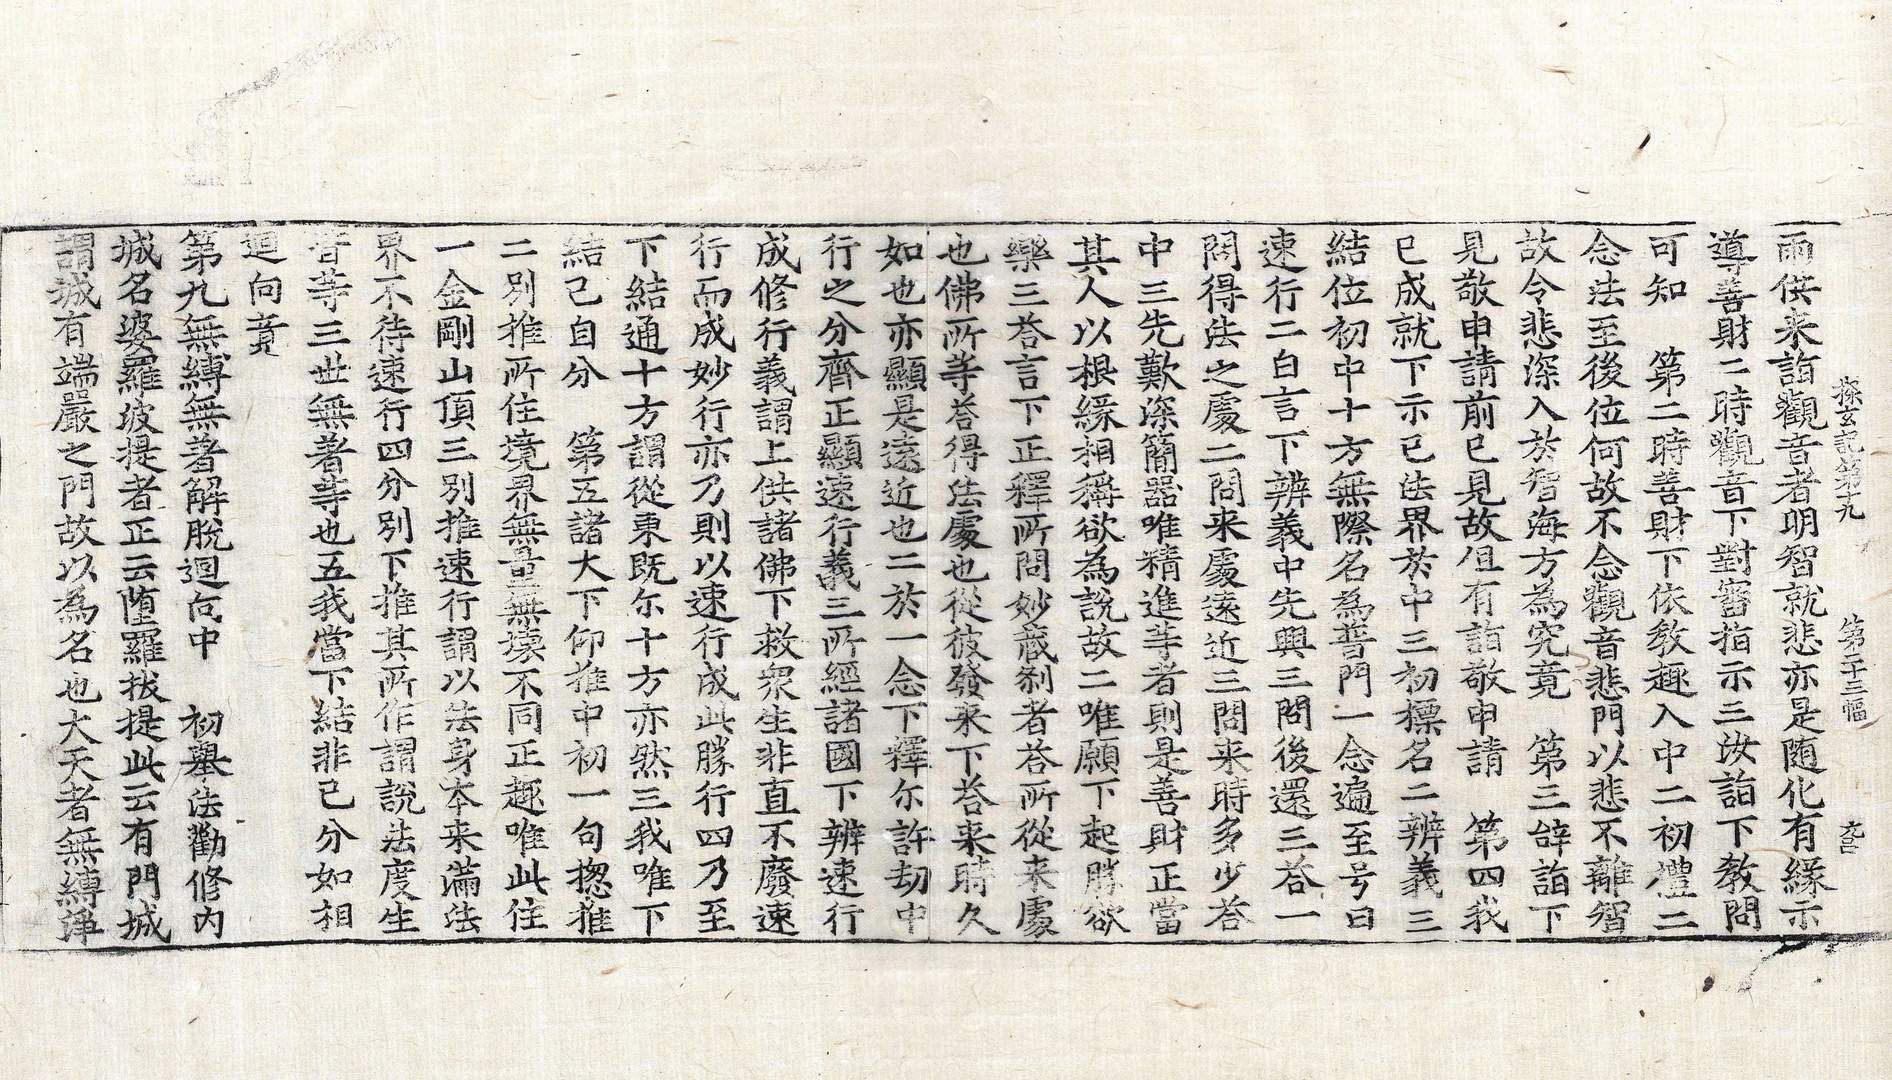 探玄記第十九　第二十三幅
雨供来詣觀音者明智就悲亦是随化有緣示
導善財二時觀音下對審指示三汝詣下教問
可知　第二時善財下依教趣入中二初禮二
念法至後位何故不念觀音悲門以悲不離智
故令悲深入於智海方為究竟　第三辞詣下
見敬申請前已見故但有詣敬申請　第四我
已成就下示已法界於中三初標名二辨義三
結位初中十方無際名為普門一念遍至号曰
速行二白言下辨義中先興三問後還三荅一
問得法之處二問来處遠近三問来時多少荅
中三先歎深簡器唯精進等者則是善財正當
其人以根緣相稱欲為說故二唯願下起勝欲
樂三荅言下正釋所問妙蔵刹者荅所從来處
也佛所等荅得法處也從彼發来下荅来時久
如也亦顯是遠近也二於一念下釋尔許劫中
行之分齊正顯速行義三所經諸國下辨速行
成修行義謂上供諸佛下救衆生非直不廢速
行而成妙行亦乃則以速行成此勝行四乃至
下結通十方謂從東既尔十方亦然三我唯下
結己自分　第五諸大下仰推中初一句揔推
二別推所住境界無量無壞不同正趣唯此住
一金剛山頂三別推速行謂以法身本来滿法
界不待速行四分別下推其所作謂說法度生
普等三世無著等也五我當下結非已分如相
迴向竟
第九無縛無著解脫迴向中　初舉法勸修內
城名婆羅波提者正云堕羅拔提此云有門城
謂城有端嚴之門故以為名也大天者無縛淨